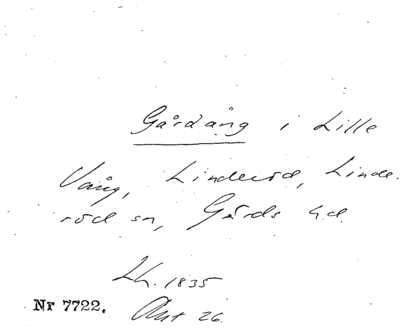 Gårdäng i Lille
Vång, Linderöd, Linde-
röd sn, Gärds hd.
Lh. 1835
Nr 7722. Akt 26.